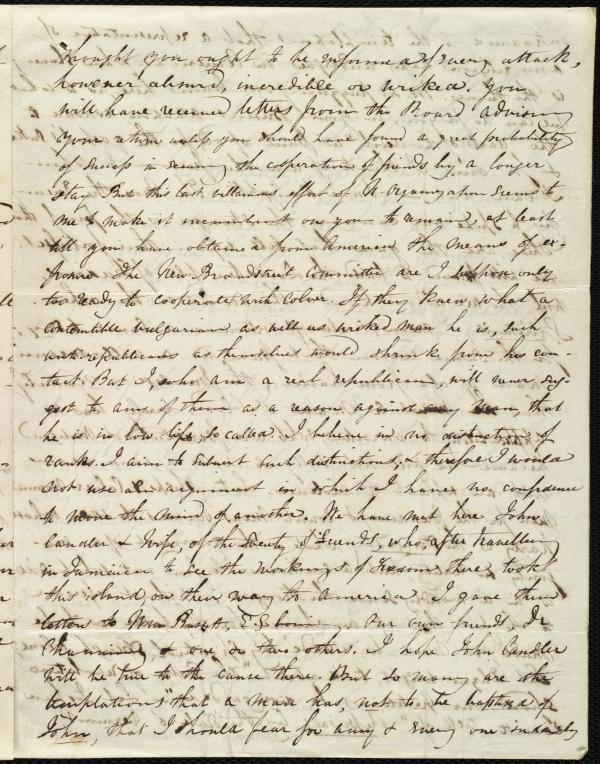 thought you ought to be informed of every attack,
however absurd, incredible or wicked. You
will have received letters from the Board advising
your return unless you should have found a great probability
of success in securing the cooperation of friends by a longer
stay. But this last villainous effort of N. Organization seems to
me to make it incumbent on you to remain, at least
till you have obtained from America the means of ex-
posure. The New Broadstreet Committee are I suppose only
too ready to cooperate with Colver. If they knew what a
contemtible vulgarian as well as wicked man he is, such
anti-republicans as themselves would shrink from his con-
tact. But I, who am a real republican, will never sug-
gest to any of them as a reason against any man, that
he is in low life, so called. I believe in no distinctions of
ranks. I aim to subvert such distinctions, & therefore I would
not use an argument in which I have no confidence
to move the mind of another. We have met here John
Candler & Wife, of the Society of Friends, who, after travelling
in Jamaica to see the workings of Freedom there took
this island on their way to America. I gave them
letters to Wm Bassett, E. G. Loring, our own friends, Dr
Channing, & one or two others. I hope John Candler
will be true to the cause there. But so many are the
temptations "that a man has, not to be baptized of
John, that I should fear for any & every one